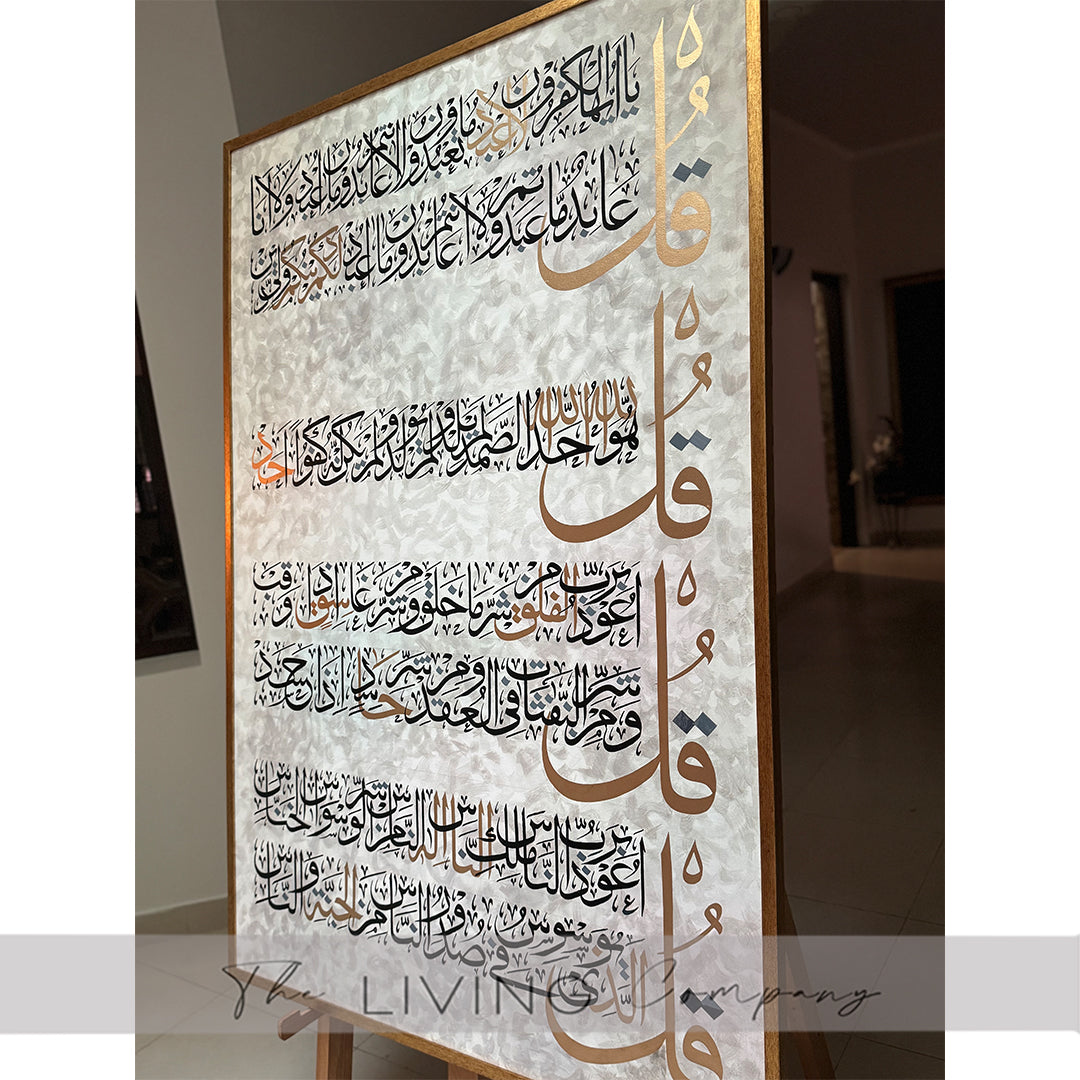 قُل يا أيها الكفرون لا أعبد ما تعبدون ولا أنتم عابدون ما أعبد ولا أنا
عابد ما عبدتم ولا أنتم عابدون ما أعبد لكم دينكم ولي دين
قُل هو الله أحد الله الصمد لم يلد ولم يولد ولم يكن له كفوا أحد
قُل أعوذ برب الفلق من شر ما خلق ومن شر غاسق إذا وقب
ومن شر النفثات في العقد ومن شر حاسد إذا حسد
قُل أعوذ برب الناس ملك الناس إله الناس من شر الوسواس الخناس
الذي يوسوس في صدور الناس من الجنة والناس
The LIVING Company